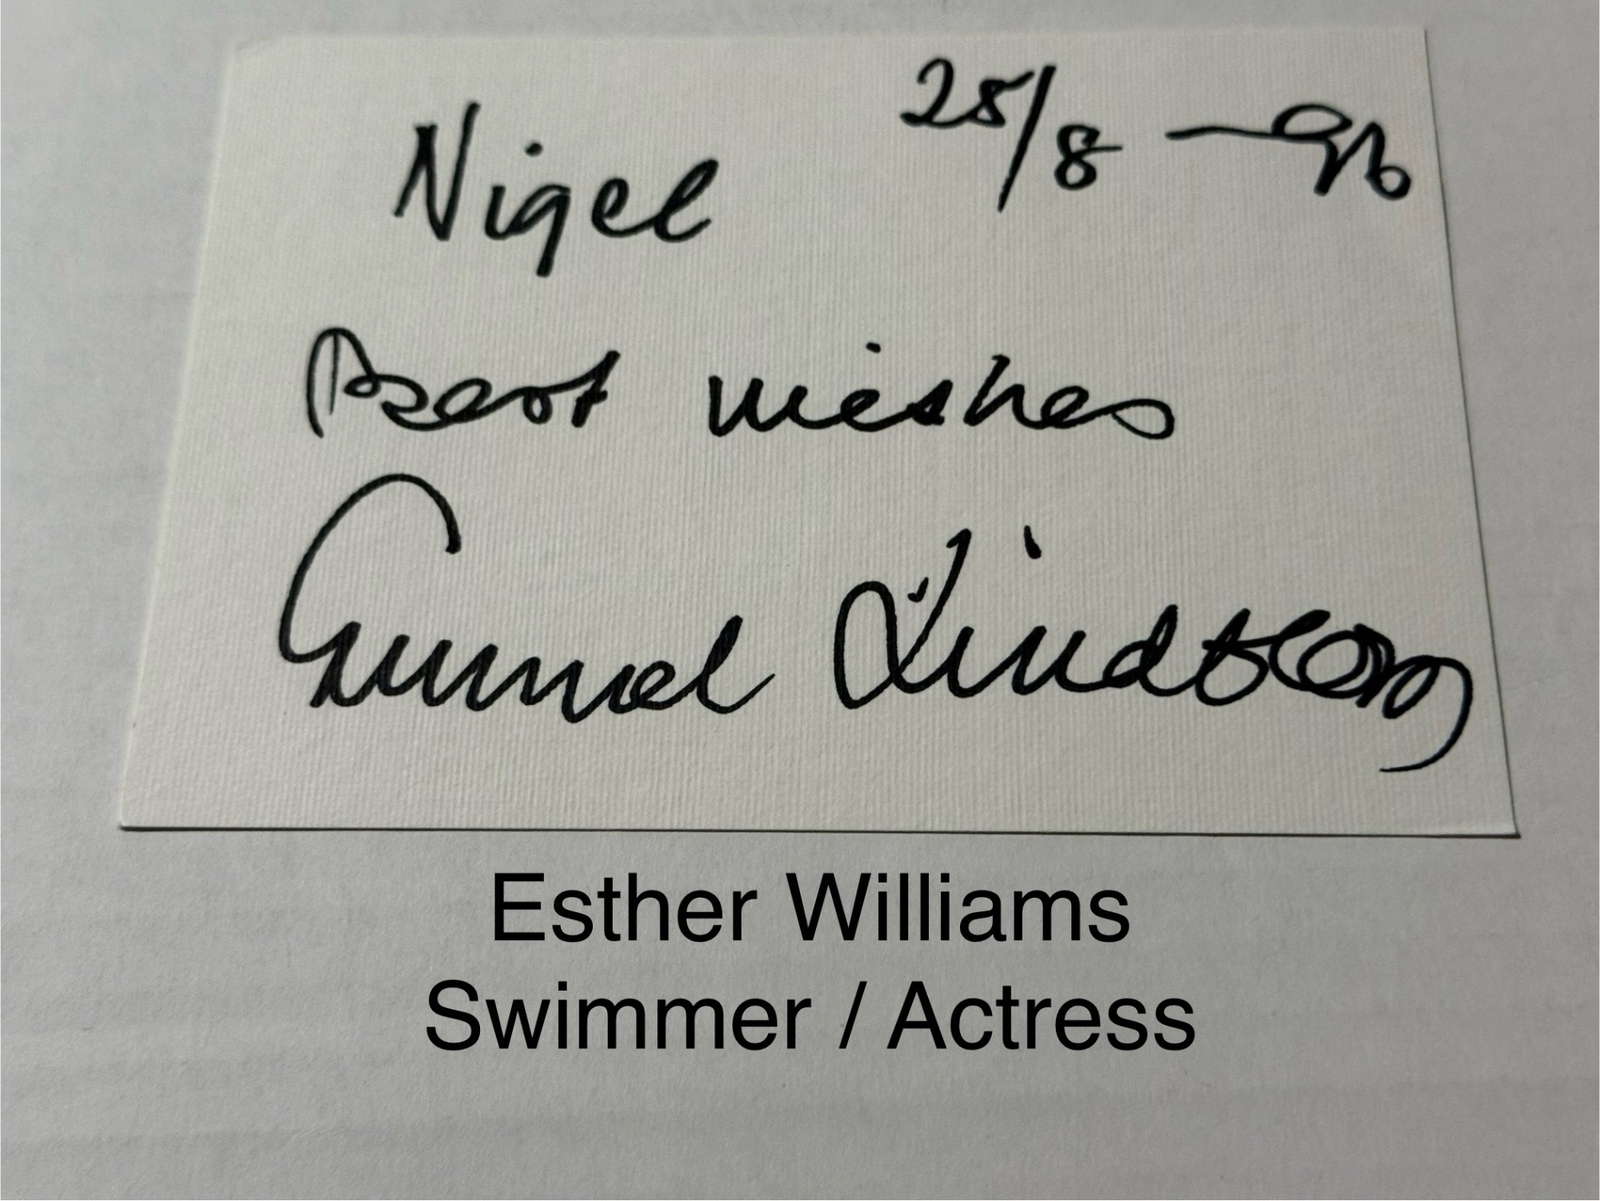 Nigel 25/8 - 96
Best wishes
Gunnel Lindblom
Esther Williams
Swimmer / Actress